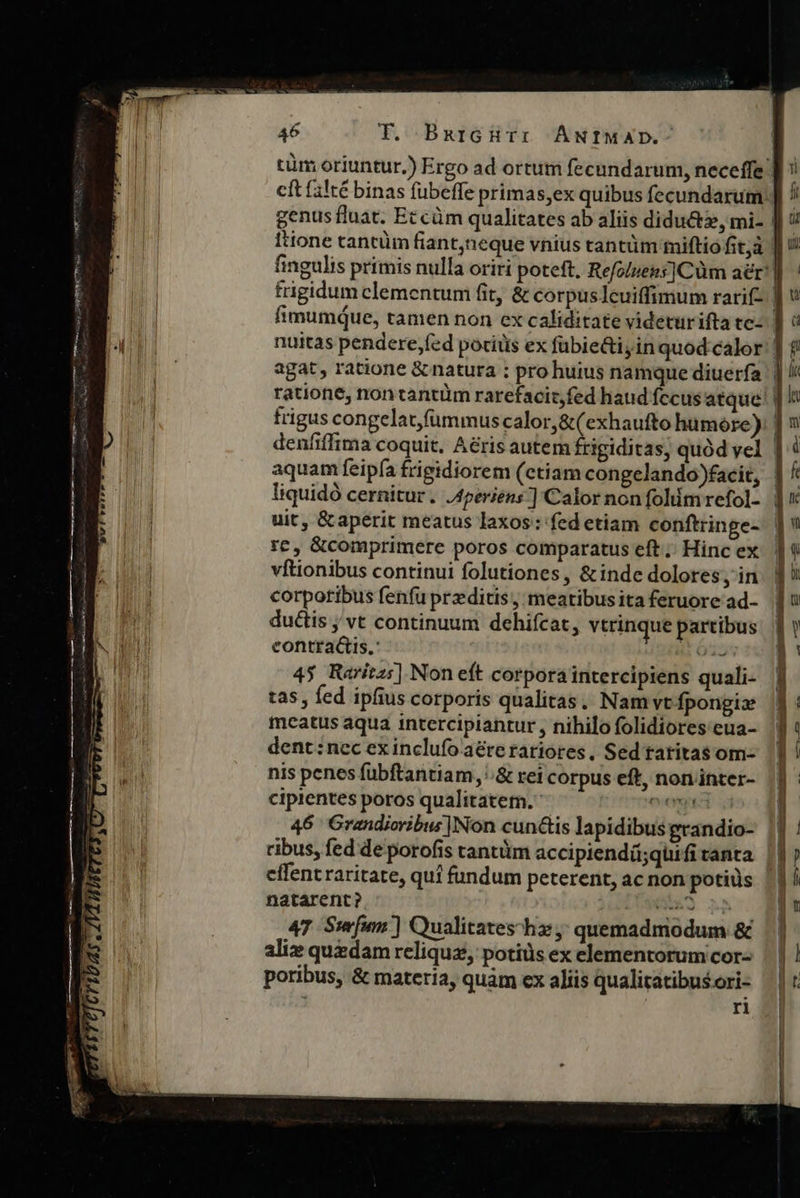 46 T. BRIGHTI ANIMAD.
tùm oriuntur.) Ergo ad ortum ſecundarum, neceſſe
eſt ſalté binas ſubeſſe primas,ex quibus ſecundarum
genus fluat. Et cùm qualitates ab aliis diductæ, mi-
ſtione tantùm fiant,neque vnius tantùm miſtio fit,à
ſingulis primis nulla oriri poteſt. Reſoluens]Cùm aër
frigidum elementum ſit, & corpus leuiſſimum rariſ-
ſimumque, tamen non ex caliditate videtur iſta te-
nuitas pendere,ſed potiùs ex ſubiecti,in quod calor
agat, ratione & natura : pro huius namque diuerſa
ratione, non tantùm rarefacit,ſed haud ſecus atque
frigus congelat,ſummus calor,&(exhauſto humore)
denſiſſima coquit. Aëris autem frigiditas, quòd vel
aquam ſeipſa frigidiorem (etiam congelando)facit,
liquidò cernitur. Aperiens] Calor non ſolùm reſol-
uit, & aperit meatus laxos: ſed etiam conſtringe-
re, & comprimere poros comparatus eſt. Hinc ex
vſtionibus continui ſolutiones, & inde dolores, in
corporibus ſenſu præditis, meatibus ita feruore ad-
ductis, vt continuum dehiſcat, vtrinque partibus
contractis.
45 Raritas] Non eſt corpora intercipiens quali-
tas, ſed ipſius corporis qualitas. Nam vt ſpongiæ
meatus aqua intercipiantur, nihilo ſolidiores eua-
dent: nec ex incluſo aëre rariores. Sed raritas om-
nis penes ſubſtantiam, & rei corpus eſt, non inter-
cipientes poros qualitatem.
46 Grandioribus]Non cunctis lapidibus grandio-
ribus, ſed de poroſis tantùm accipiendū;qui ſi tanta
eſſent raritate, quî fundum peterent, ac non potiùs
natarent?
47 Surſum] Qualitates hæ, quemadmodum &
aliæ quædam reliquæ, potiùs ex elementorum cor-
poribus, & materia, quàm ex aliis qualitatibus ori-
ri